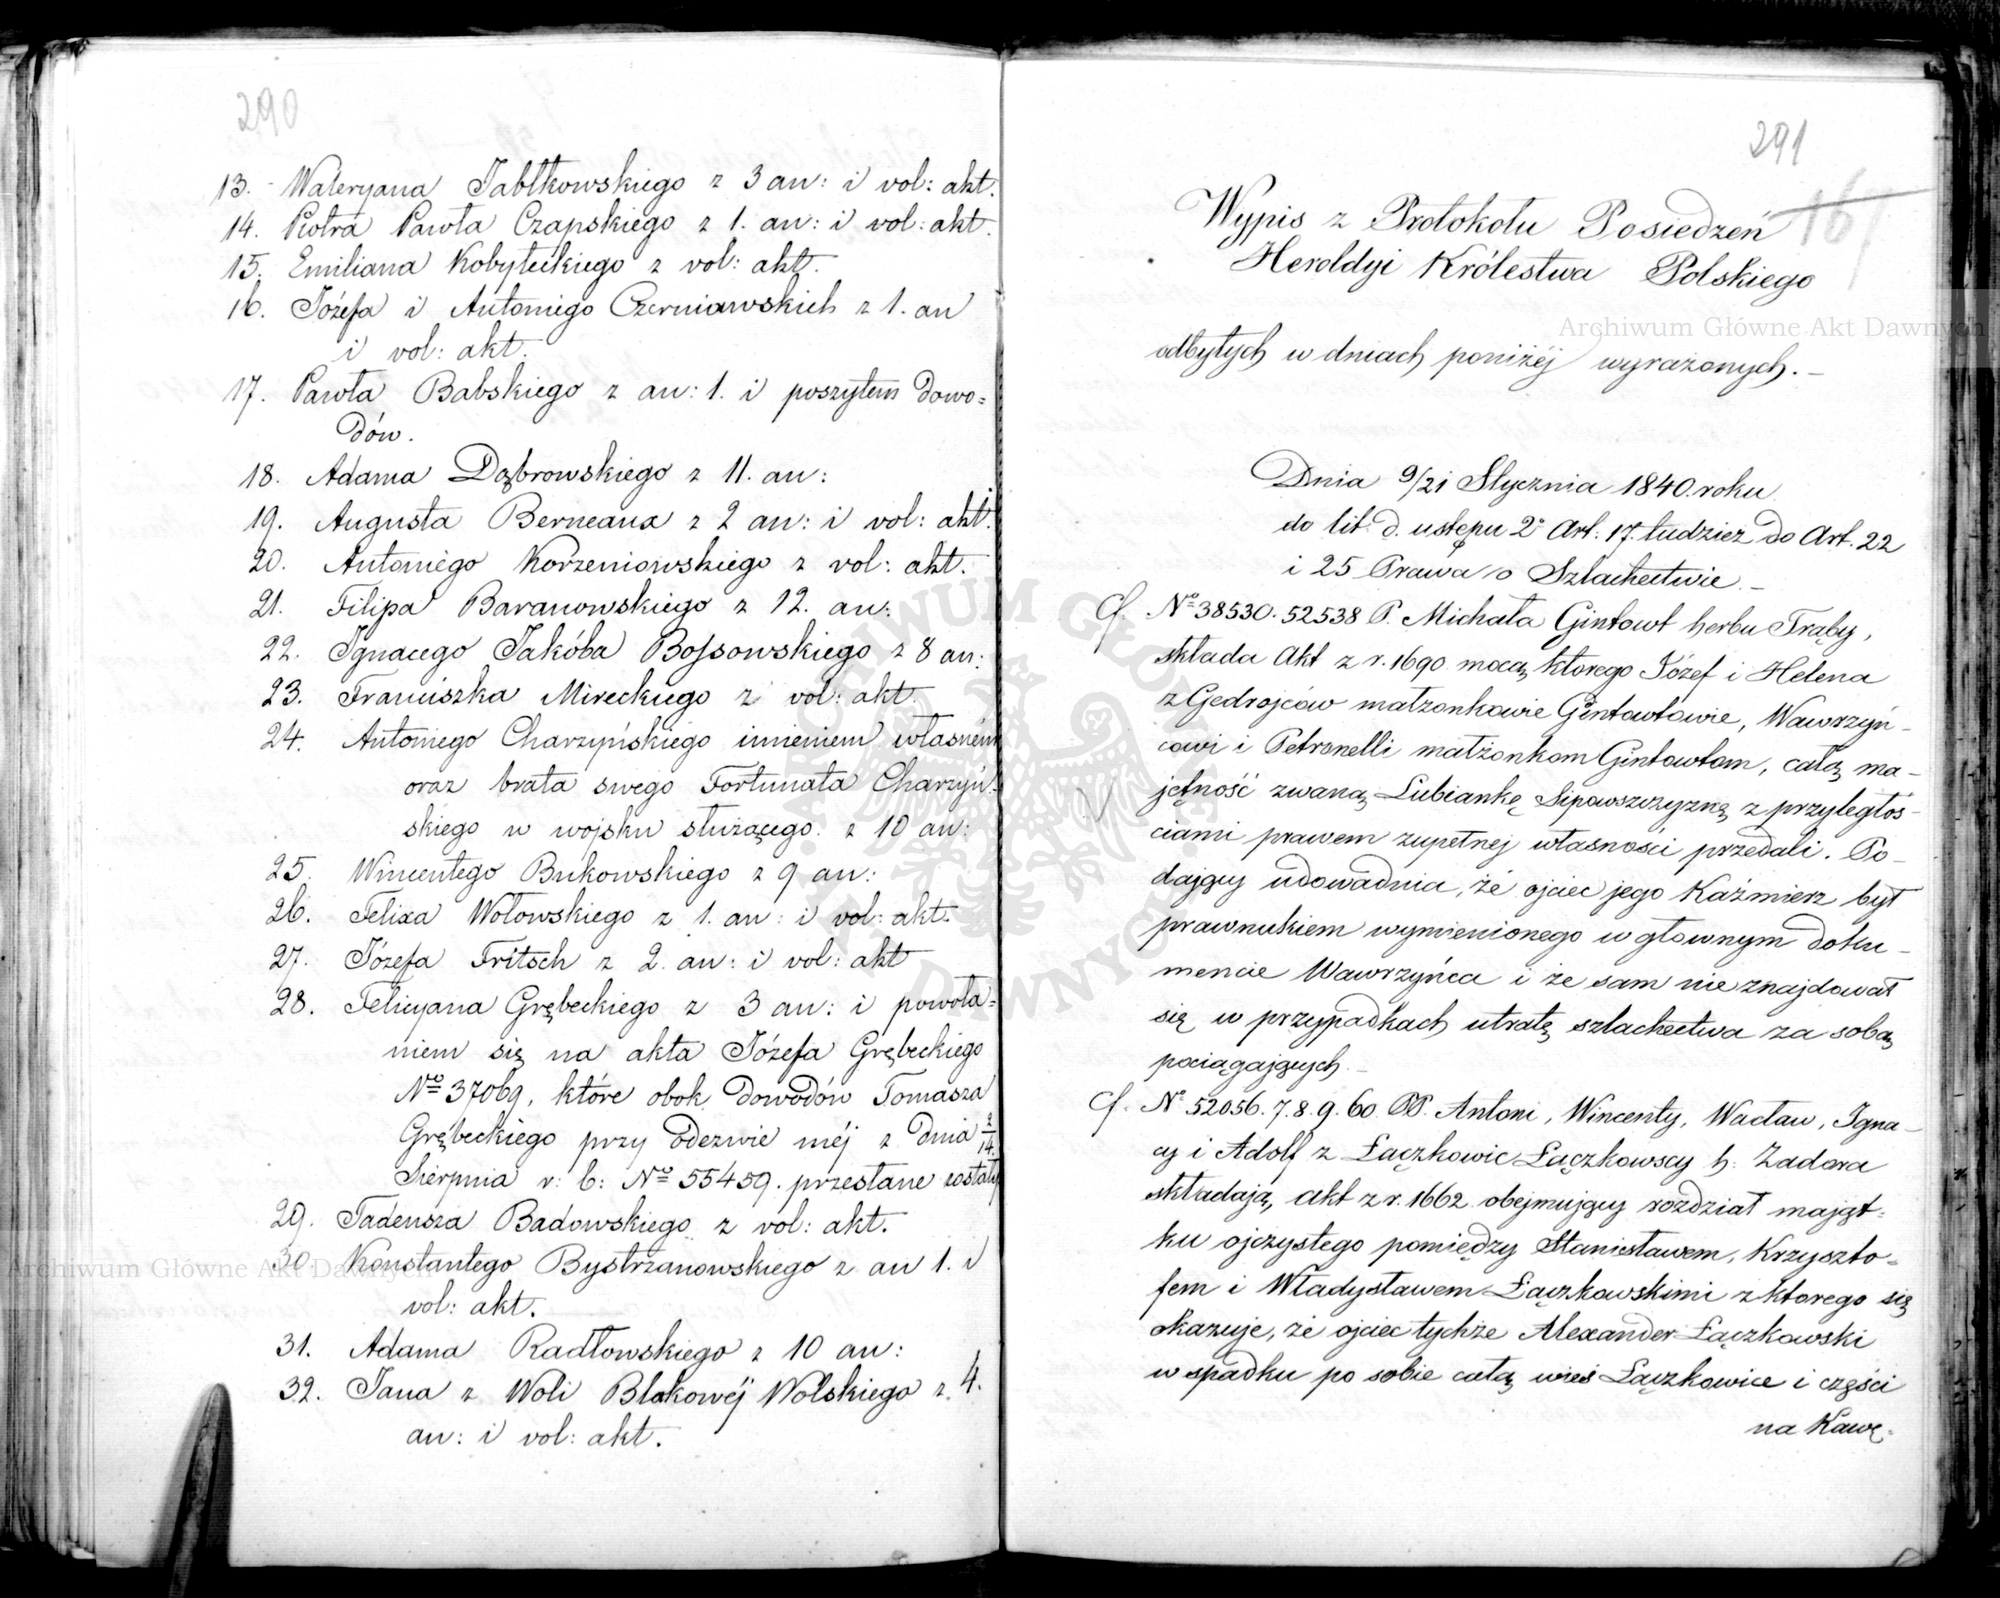 290
13. Waleryana Jabłkowskiego z 3 an: i vol: akt.
14. Piotra Pawła Czapskiego z 1. an: i vol: akt.
15. Emiliana Kobyłeckiego z vol: akt.
16. Józefa i Antoniego Czerniawskich z 1. an
i vol: akt.
17. Pawła Babskiego z an: 1. i poszytem dowo=
dów.
18. Adama Dąbrowskiego z 11. an:
19. Augusta Berneaux z 2 an: i vol: akt.
20. Antoniego Korzeniowskiego z vol: akt.
21. Filipa Baranowskiego z 12. an:
22. Ignacego Jakóba Bossowskiego z 8 an:
23. Franciszka Mireckiego z vol: akt.
24. Antoniego Charzyńskiego imieniem własném
oraz brata swego Fortunata Charzyń=
skiego w wojsku służącego. z 10 an:
25. Wincentego Bukowskiego z 9 an:
26. Felixa Wołowskiego z 1. an: i vol: akt.
27. Józefa Fritsch z 2. an: i vol: akt
28. Felicyana Grębeckiego z 3 an: i powoła=
niem się na akta Józefa Grębeckiego
No 37069, które obok dowodów Tomasza
Grębeckiego przy odezwie méj z dnia 2/14
Sierpnia r: b: No 55459. przesłane zostały
29. Tadeusza Badowskiego z vol: akt.
30. Konstantego Bystrzanowskiego z an 1. i
vol: akt.
31. Adama Radłowskiego z 10 an:
32. Jana z Woli Blakowéj Wolskiego z 4.
an: i vol: akt.
291
16
Wypis z Protokołu Posiedzeń
Heroldyi Królestwa Polskiego
odbytych w dniach poniżéj wyrażonych. –
Dnia 9/21 Stycznia 1840. roku.
do lit: d. ustępu 2o Art: 17. tudzież do Art. 22
i 25 Prawa o Szlachectwie. –
Cf. No 38530. 52538 P. Michała Gintowt herbu Trąby,
składa Akt z r. 1690. mocą którego Józef i Helena
z Gedrojców małżonkowie Gintowtowie, Wawrzyń-
cowi i Petronelli małżonkom Gintowtom, całą ma-
jętność zwaną Lubiankę Sipowszczyznę z przyległoś-
ciami prawem zupełnej własności przedali. Po-
dający udowadnia, że ojciec jego Kaźmierz był
prawnukiem wymienionego w głownym doku-
mencie Wawrzyńca i że sam nie znajdował
się w przypadkach utratę szlachectwa za sobą
pociągających. –
Cf. No 52056. 7. 8. 9. 60. PP. Antoni, Wincenty, Wacław, Igna-
cy i Adolf z Łączkowic Łączkowscy h. Zadora
składają, Akt z r. 1662. obejmujący rozdział mająt=
ku ojczystego pomiędzy Stanisławem, Krzyszto=
fem i Władysławem Łączkowskimi z którego się
okazuje, że ojciec tychże Alexander Łączkowski
w spadku po sobie całą wieś Łączkowice i części
na Kawę=
Archiwum Główne Akt Dawnych
Archiwum Główne Akt Dawnych
ARCHIWUM GŁÓWNE AKT DAWNYCH